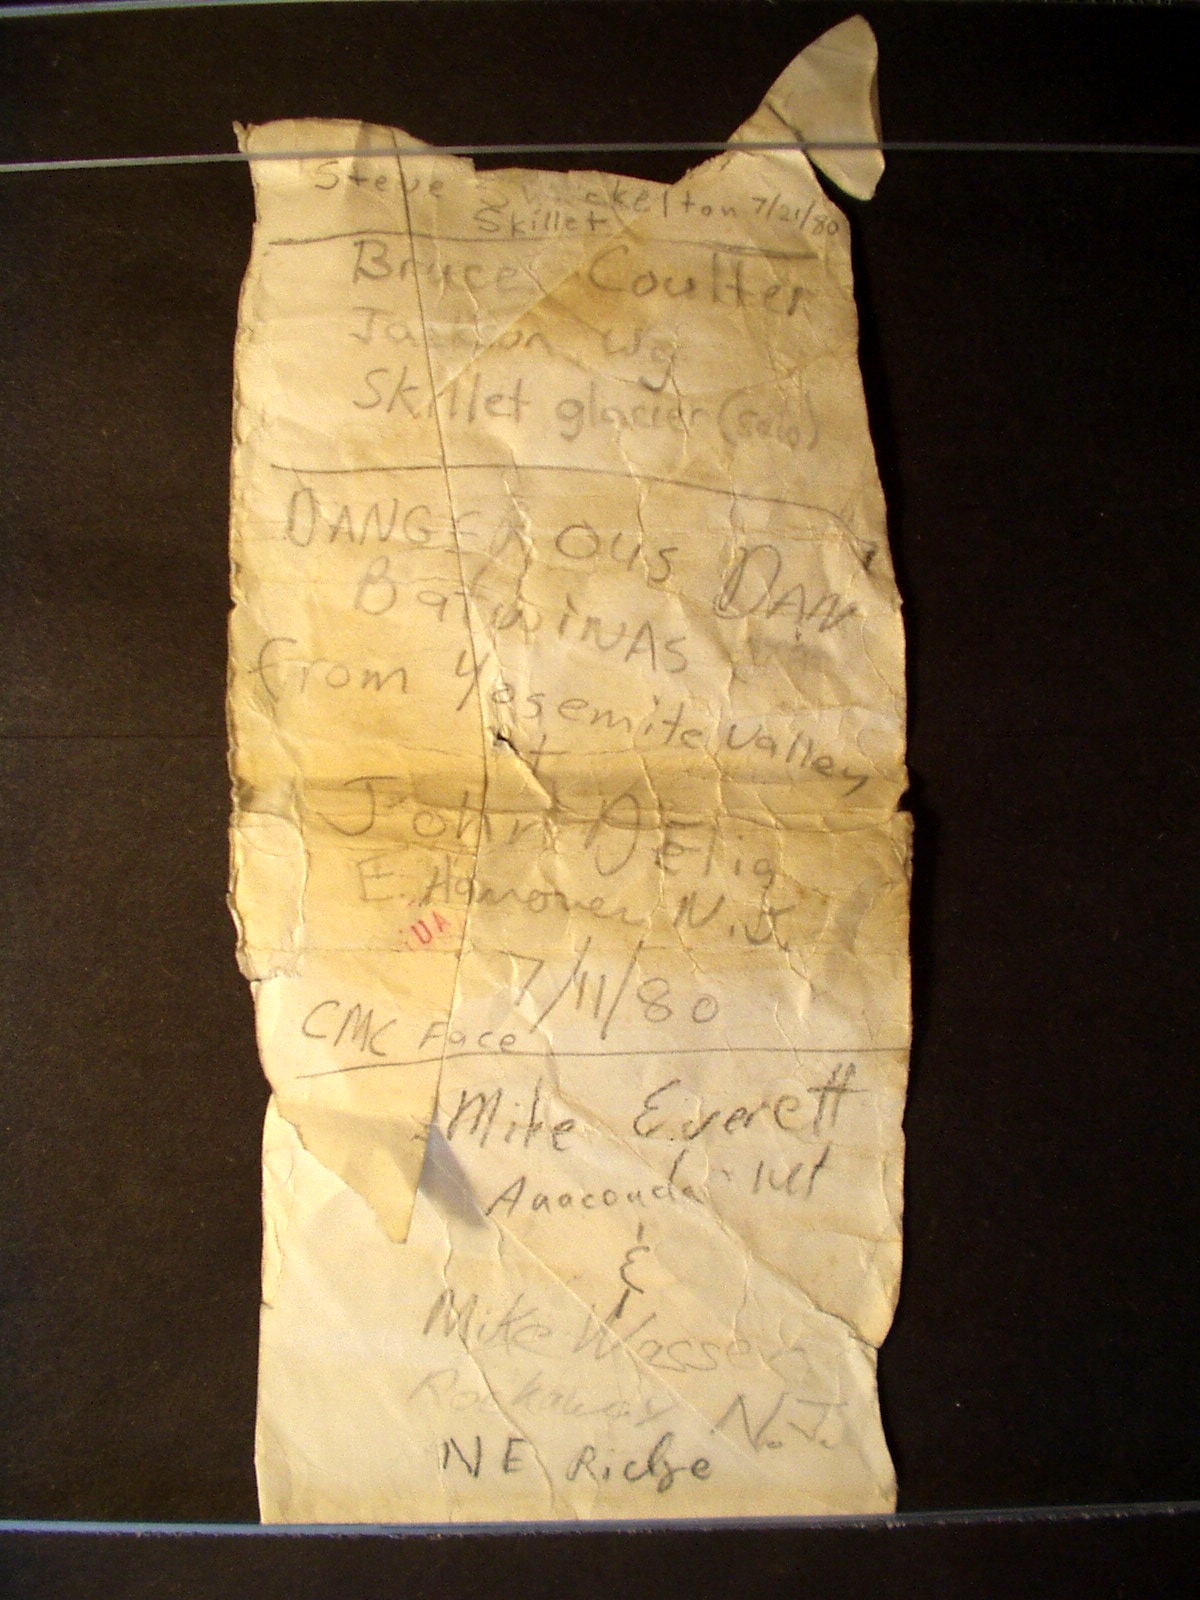 Steve Shackelton 7/21/80
Skillet
Bruce Coulter
Jackson Wy
Skillet glacier (solo)
DANGEROUS DAN
BatwiNAS
from Yosemite Valley
John Delia
E. Hanover N.J.
UA
7/11/80
CMC Face
Mike Everett
Anaconda Mt
&
Mike
Rockaway N.J.
NE Ridge